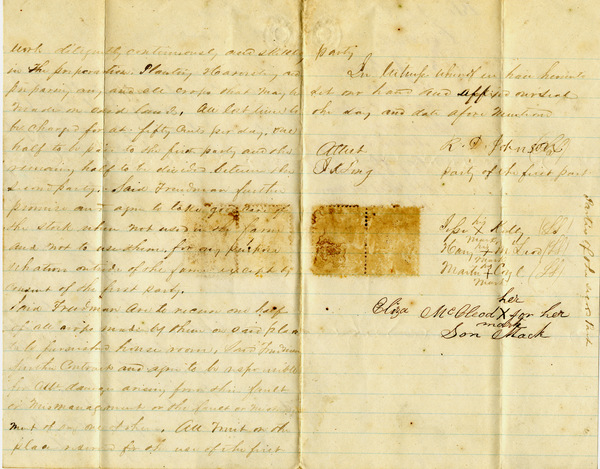 work diligently continuously and
in the preparation Planting Harvesting and
preparing any and all crops that may be
made on said land. All lost time to
be charged for at fifty cents per day, one
half to be paid to the first party and the
remaing half to be divided between the
second party. Said Freedman further
promise and agree to take good care of
the stock when not used in the farm
and not to use them for any purpose
whatever outside of the farm except by
consent of the first party.
Said Freedman are to receive one half
of all crops made by them on said place
to be furnished house room. Said Freedmen
further Contracts and agree to be responsible
for all damage arising from their fault
or mismanagement or the fault or
of any of them. All fruit on the
place reserved for the use of the first
party
In witness whereof we have hereunto
set our hand and affixed our seal
the day and date afore mentioned
Attest
R. D.
party of the first part
his
X Kelly (LS)
mark
X McLeod (LS)
mark
X (LS)
mark
her
Eliza McCleod X for her
mark
Son Mack